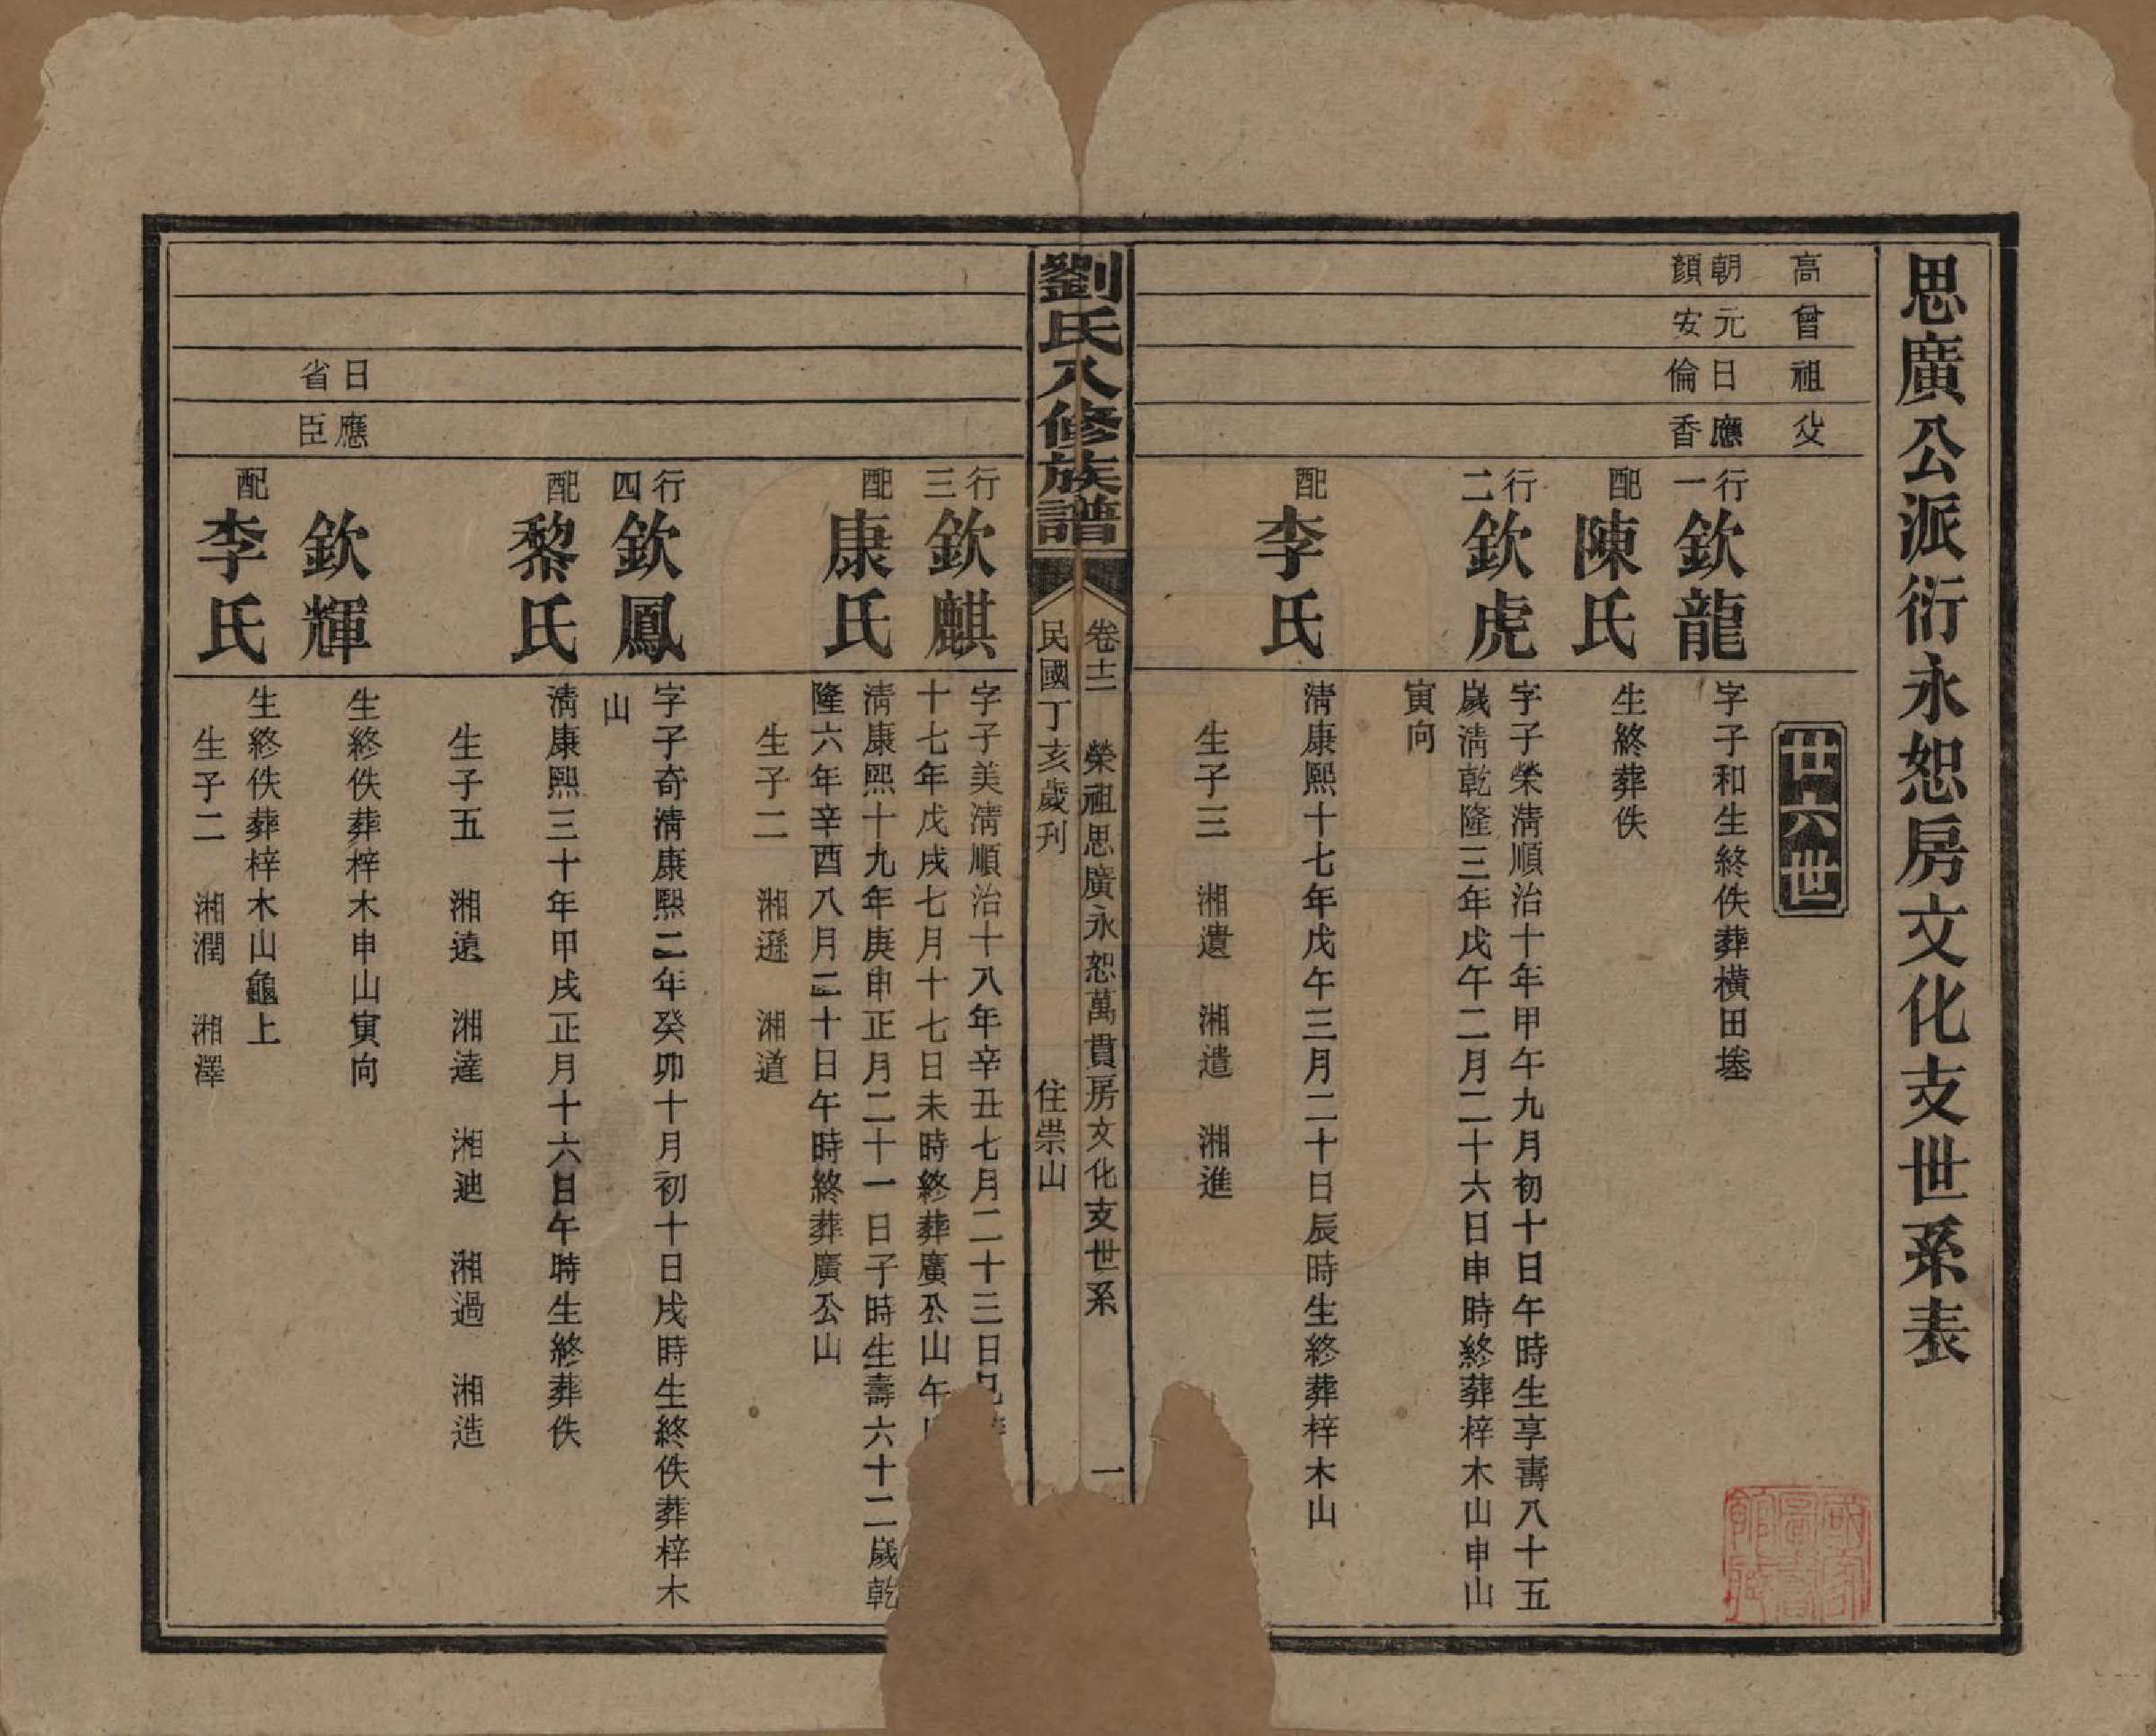 思廣公派衍永恕房文化支世系表
高 曾 祖 父
廿六世
朝顏 元安 日倫 應香
行一 欽龍
字子和生終佚葬橫田墈
配 陳氏
生終葬佚
行二 欽虎
字子榮淸順治十年甲午九月初十日午時生享壽八十五
歲淸乾隆三年戊午二月二十六日申時終葬梓木山申山
寅向
配 李氏
淸康熙十七年戊午三月二十日辰時生終葬梓木山
生子三 湘遺 湘遣 湘進
劉氏八修族譜
卷十二 榮祖思廣永恕萬貫房文化支世系 一
民國丁亥歲刋 住崇山
行三 欽麒
字子美淸順治十八年辛丑七月二十三日
十七年戊戌七月十七日未時終葬廣公山午
配 康氏
淸康熙十九年庚申正月二十一日子時生壽六十二歲乾
隆六年辛酉八月二十日午時終葬廣公山
生子二 湘遜 湘道
行四 欽鳳
字子奇淸康熙二年癸卯十月初十日戌時生終佚葬梓木
山
配 黎氏
淸康熙三十年甲戌正月十六日午時生終葬佚
生子五 湘遠 湘達 湘迪 湘過 湘造
日省 應臣
欽輝
生終佚葬梓木申山寅向
配 李氏
生終佚葬梓木山龜上
生子二 湘潤 湘澤
國家圖書館藏